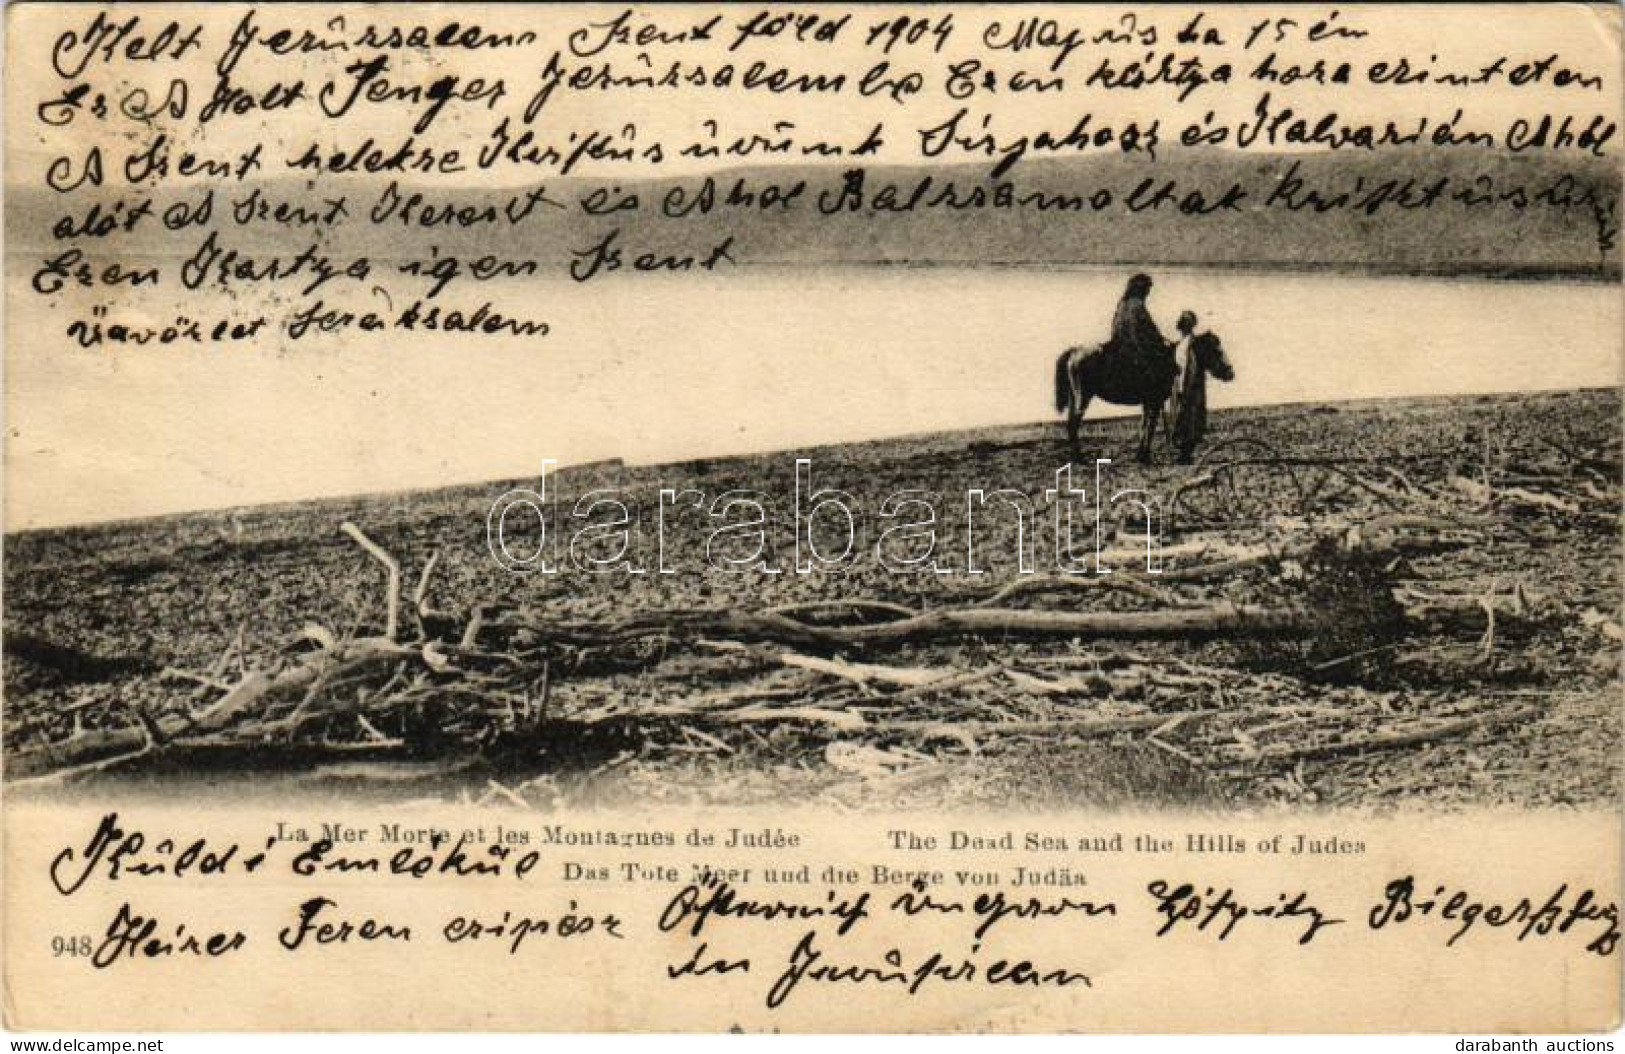 Kelt Jerûrsalem Szent föld 1904 Majús ha 15 én
Ez A Holt Tenger Jerûrsalembe Ezen kártya hoza ezinteten
A Szent helekre Krisztus urunk Sirjahosz és Kalvarián Ahol
alót A Szent Kereszt és Ahol Balzsamoltak Krisztus
Ezen Kartya igen Szent
Üdvözlet Jeruksalem
La Mer Morte et les Montagnes de Judée The Dead Sea and the Hills of Judea
Das Tote Meer und die Berge von Judäa
Küldi Emlékül
948 Heirer Feren czipész
in
darabanth
948.jpg Copyright: www.darabanth.com darabanth auctions